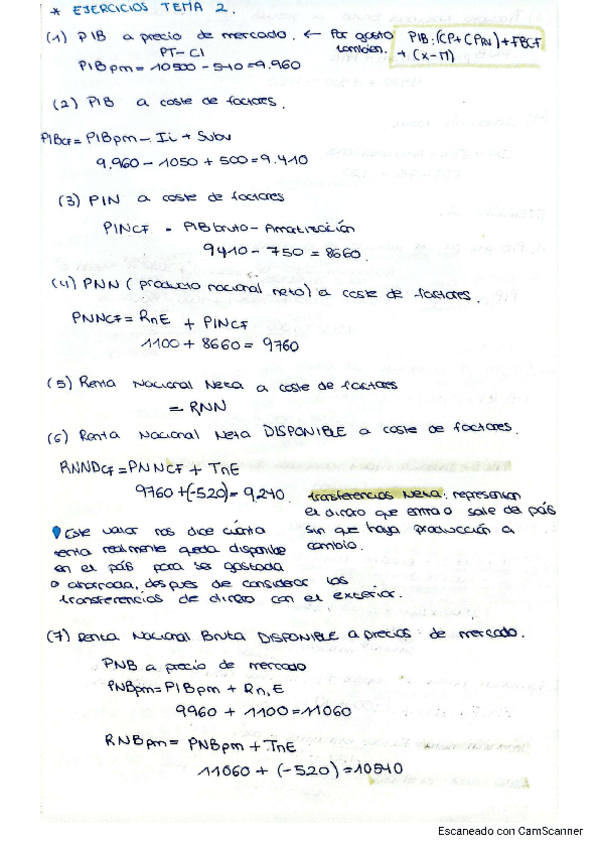 * EJERCICIOS TEMA 2.
(1) PIB a precio de mercado. ← Por gasto también. PIB: (CP + CPN) + FBCF + (X-M)
PT - CI
PIBpm = 10500 - 540 = 9.960
(2) PIB a coste de factores.
PIBCF = PIBpm - Ii + Subv
9.960 - 1050 + 500 = 9.410
(3) PIN a coste de factores
PINCF = PIB bruto - Amortización
9410 - 750 = 8660.
(4) PNN (producto nacional neto) a coste de factores.
PNNCF = RnE + PINCF
1100 + 8660 = 9760
(5) Renta Nacional Neta a coste de factores
= RNN
(6) Renta Nacional Neta DISPONIBLE a coste de factores.
RNNDCF = PNNCF + TnE
9760 + (-520) = 9,240.
transferencias Neta: representan
el dinero que entra o sale de país
sin que haya producción a
cambio.
Este valor nos dice cuánta
renta realmente queda disponible
en el país para ser gastada
o ahorrada, despues de considerar las
transferencias de dinero con el exterior.
(7) Renta Nacional Bruta DISPONIBLE a precios de mercado.
PNB a precio de mercado
PNBpm = PIBpm + Rn,E
9960 + 1100 = 11060
RNBpm = PNBpm + TnE
11060 + (-520) = 10540
Escaneado con CamScanner